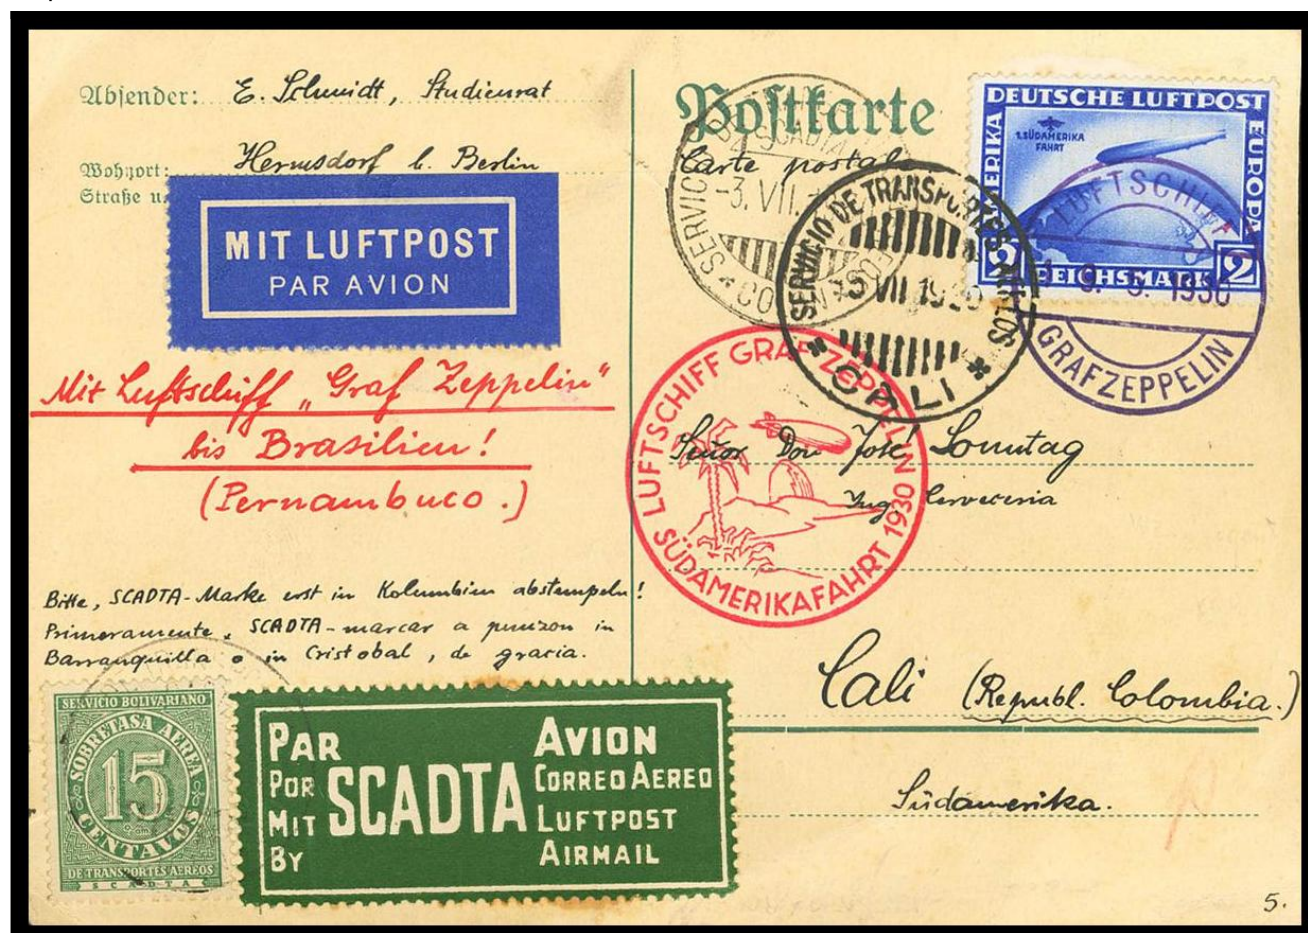 Absender: E. Schmidt, Studienrat
Wohnort: Hermsdorf b. Berlin
Straße u.
MIT LUFTPOST
PAR AVION
Mit Luftschiff „Graf Zeppelin"
bis Brasilien!
(Pernambuco.)
Bitte, SCADTA-Marke erst in Kolumbien abstempeln!
Primeramente, SCADTA-marcar a punzon in
Barranquilla o in Cristobal, de gracia.
SERVICIO BOLIVARIANO
SOBRETASA AEREA
15
CENTAVOS
DE TRANSPORTES AEREOS
SCADTA
PAR AVION
POR CORREO AEREO
MIT SCADTA LUFTPOST
BY AIRMAIL
Postkarte
Carte postale
SERVICIO
SCADTA
-3. VII.
SERVICIO DE TRANSPORTES
5 VII 1930
CALI
DEUTSCHE LUFTPOST
EUROPA
1. SÜDAMERIKA
FAHRT
2 REICHSMARK 2
LUFTSCHIFF
1930
GRAF ZEPPELIN
LUFTSCHIFF GRAF ZEPPELIN
SÜDAMERIKAFAHRT 1930
Señor Don José Sonntag
Ing. Cerveceria
Cali (Republ. Colombia.)
Südamerika.
5.